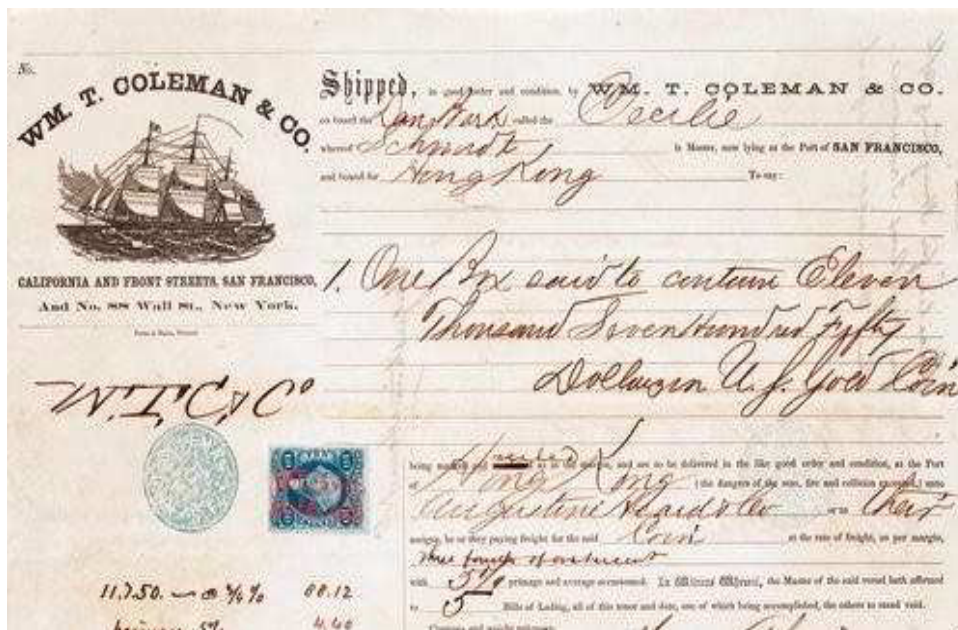 No.
WM. T. COLEMAN & CO.
CALIFORNIA AND FRONT STREETS, SAN FRANCISCO,
And No. 88 Wall St., New York.
Shipped, in good order and condition, by WM. T. COLEMAN & CO.
on board the Dan Bark called the Cecilie
whereof Schmidt is Master, now lying at the Port of SAN FRANCISCO,
and bound for Hong Kong To say:
1. One Box said to contain Eleven
Thousand Seven Hundred Fifty
Dollars in U.S. Gold Coin
being marked and as in the margin, and are to be delivered in the like good order and condition, at the Port
of Hong Kong (the dangers of the seas, fire and collision excepted,) unto
Augustine Heard & Co or to their
assigns, he or they paying freight for the said Coin at the rate of freight, as per margin,
three fourths of one percent
with 5% primage and average accustomed. In Witness Whereof, the Master of the said vessel hath affirmed
to 5 Bills of Lading, all of this tenor and date, one of which being accomplished, the others to stand void.
11.750. @ ¾% 88.12
primage 5% 4.40